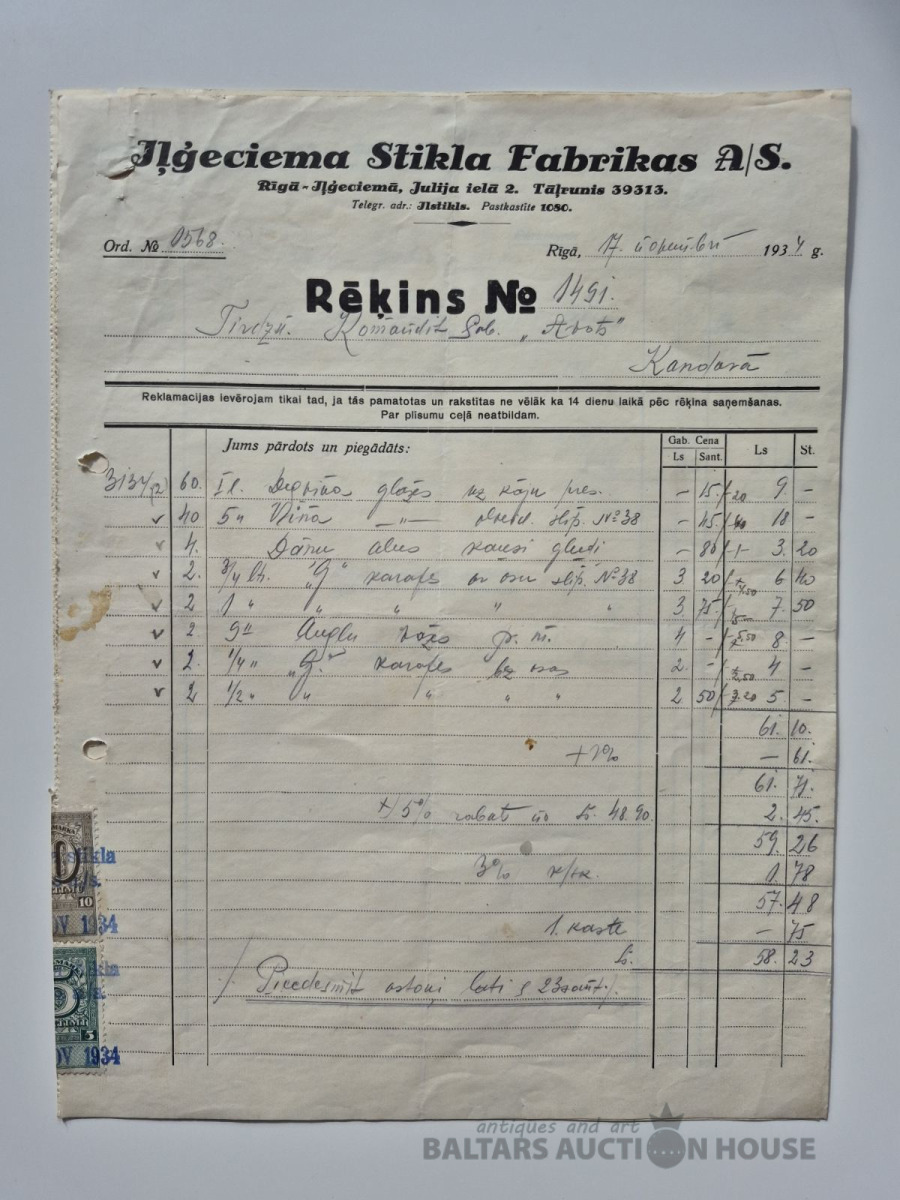 Iļģeciema Stikla Fabrikas A/S.
Rīgā-Iļģeciemā, Julija ielā 2. Tāļrunis 39313.
Telegr. adr.: Ilstikls. Pastkastīte 1080.
Ord. № 0568. Rīgā, 17. 1934 g.
Rēķins № 1491.
Komandit Sab. "Avots"
Kandavā
Reklamacijas ievērojam tikai tad, ja tās pamatotas un rakstitas ne vēlāk ka 14 dienu laikā pēc rēķina saņemšanas.
Par plisumu ceļā neatbildam.
Jums pārdots un piegādāts: Gab. Cena Ls St.
Ls Sant.
60. Degvīna glāzes uz kāju pres. – 15 9. –
40 5" Vīna —"— slip. №38 – 45 18 –
4. alus kausi gludi – 80 3. 20
2. 3/4 lt. "G" karafes ar osu slip. №38 3 20 6 40
2 1 " " " " " 3 75 7. 50
2. 9" Angļu 4 – 8 –
2. 1/4 " "G" karafes bez osas 2. – 4 –
2 1/2 " " " " " 2 50 5 –
61. 10.
– 61.
61. 71.
5% rabats no Ls. 48.90. 2. 45.
59. 26
3% 1. 78
57. 48
1. kaste – 75
Ls. 58. 23
Piecdesmit astoņi lati 23 sant.
stikla
10
NOV 1934
5
3
NOV 1934
antiques and art
BALTARS AUCTION HOUSE